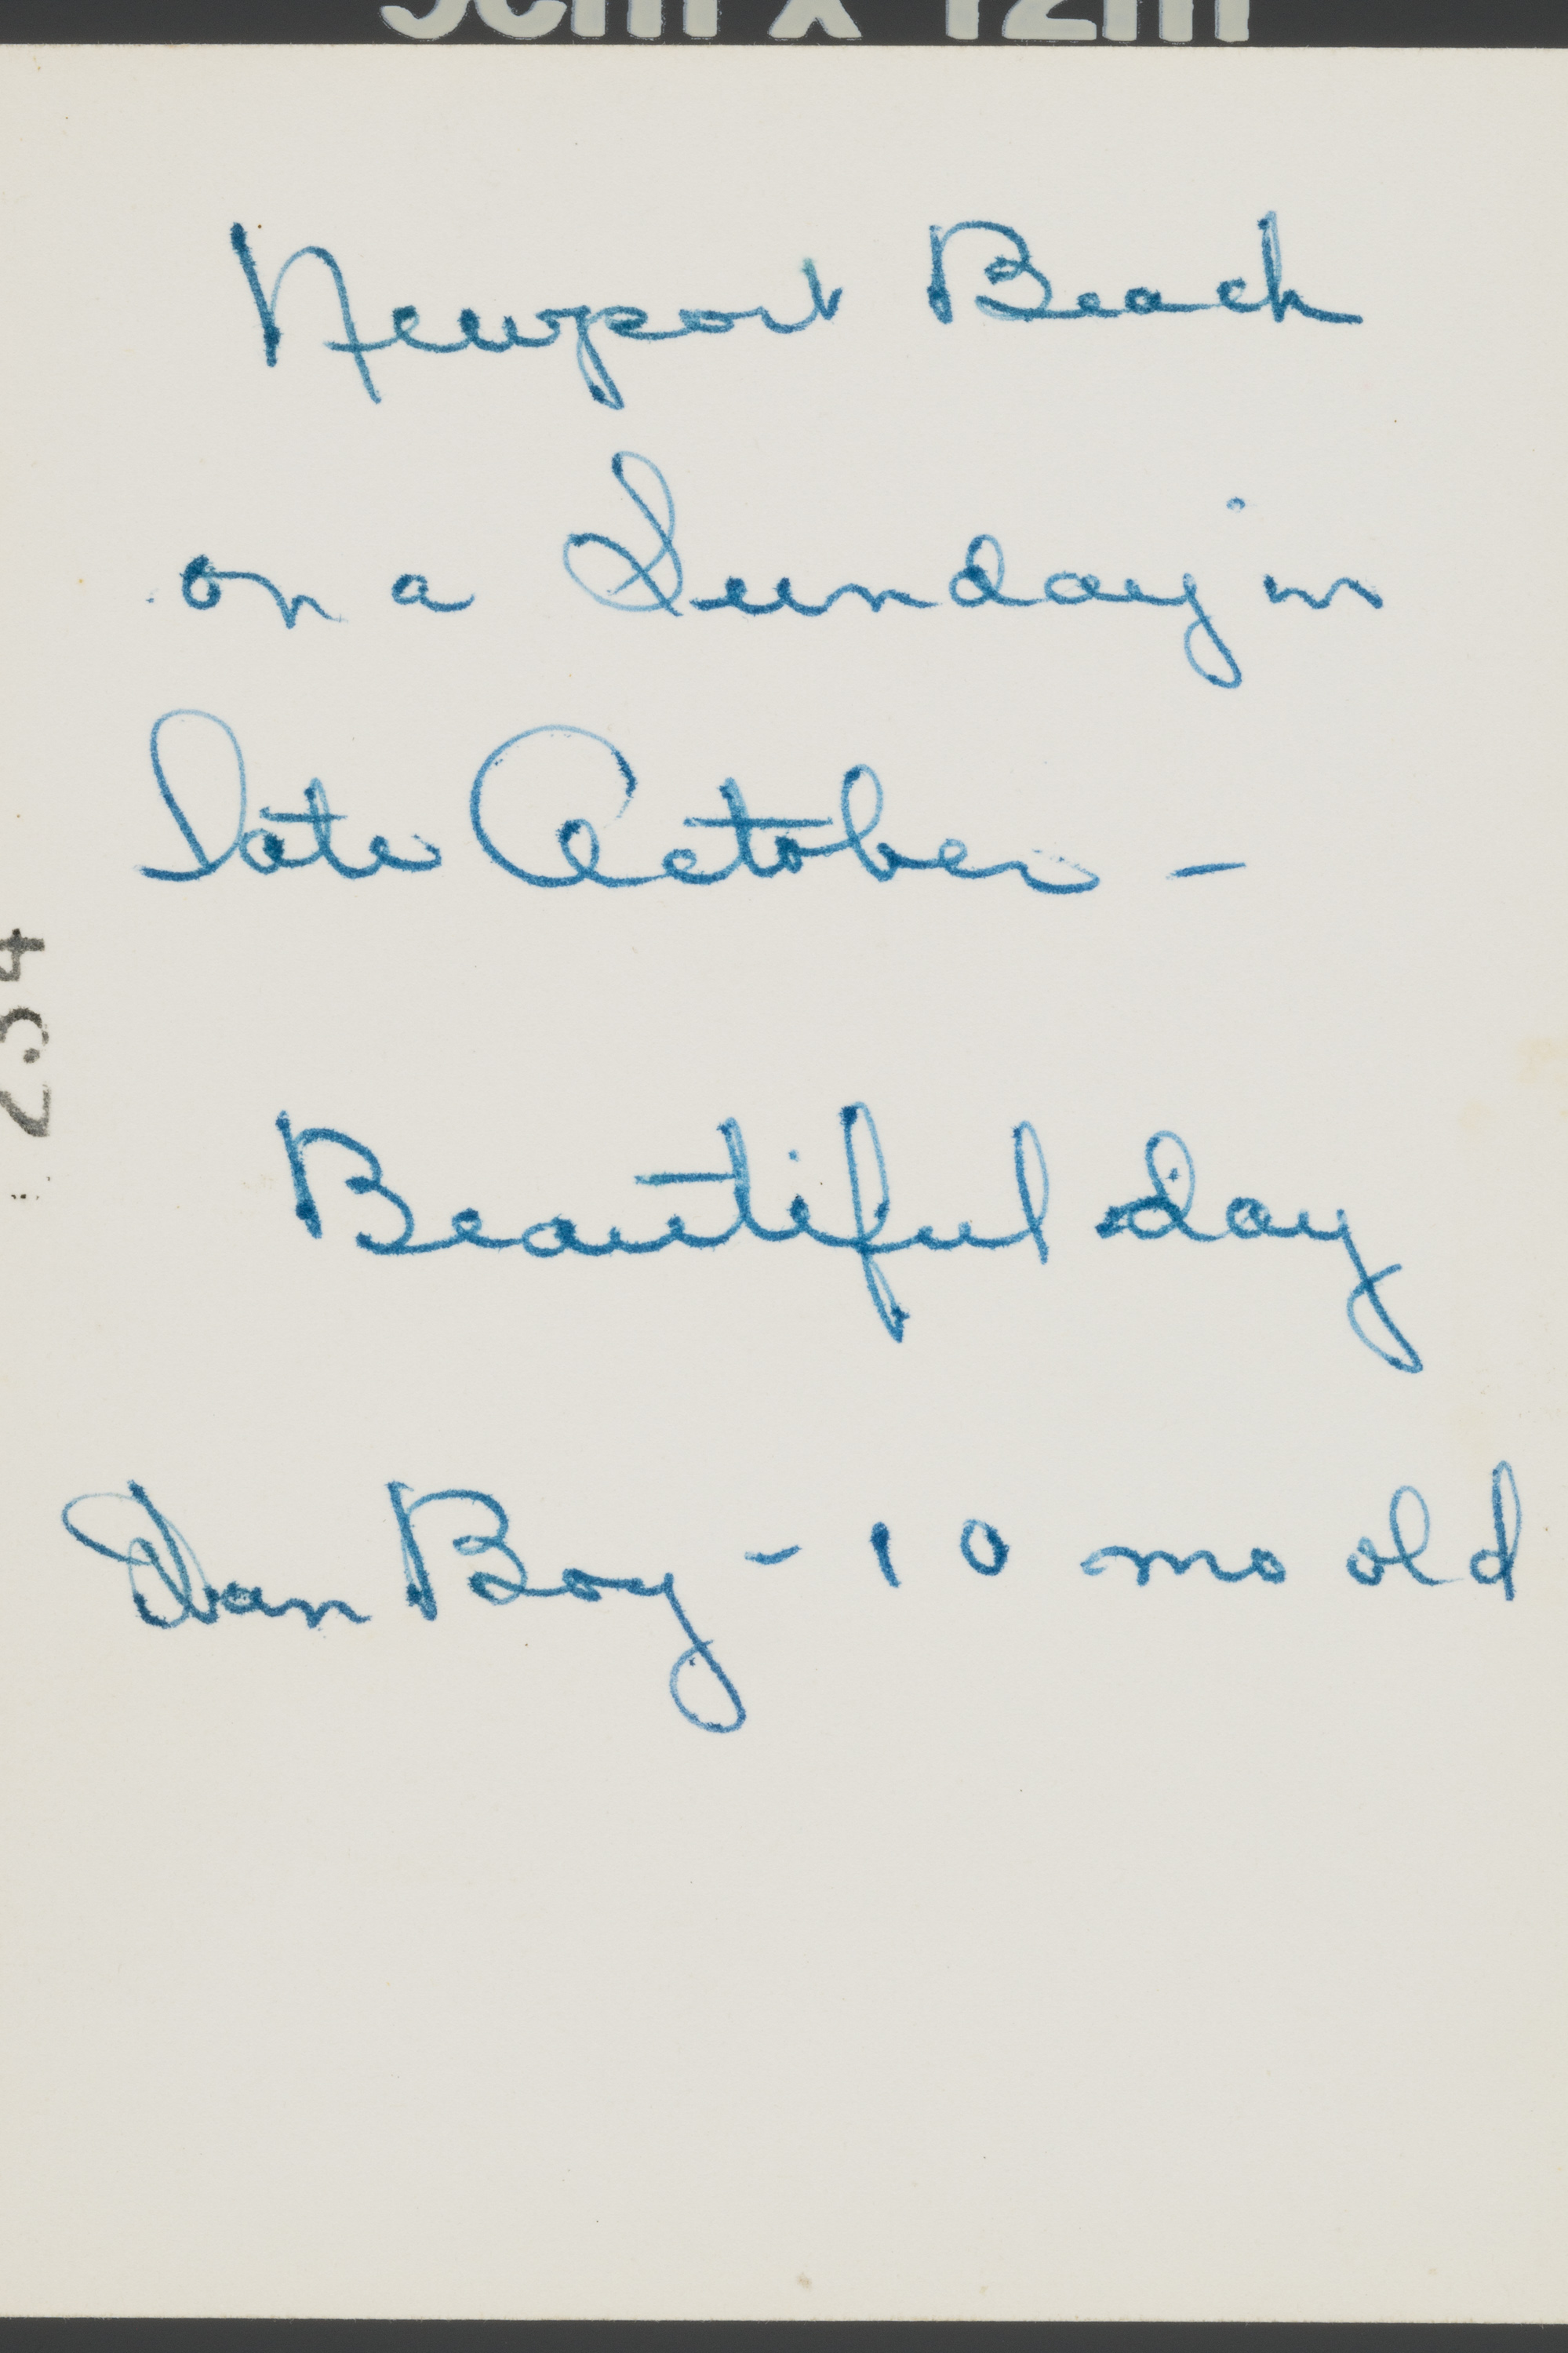 Newport Beach
on a Sunday in
late October -
Beautiful day
Dan Boy - 10 mo old
234